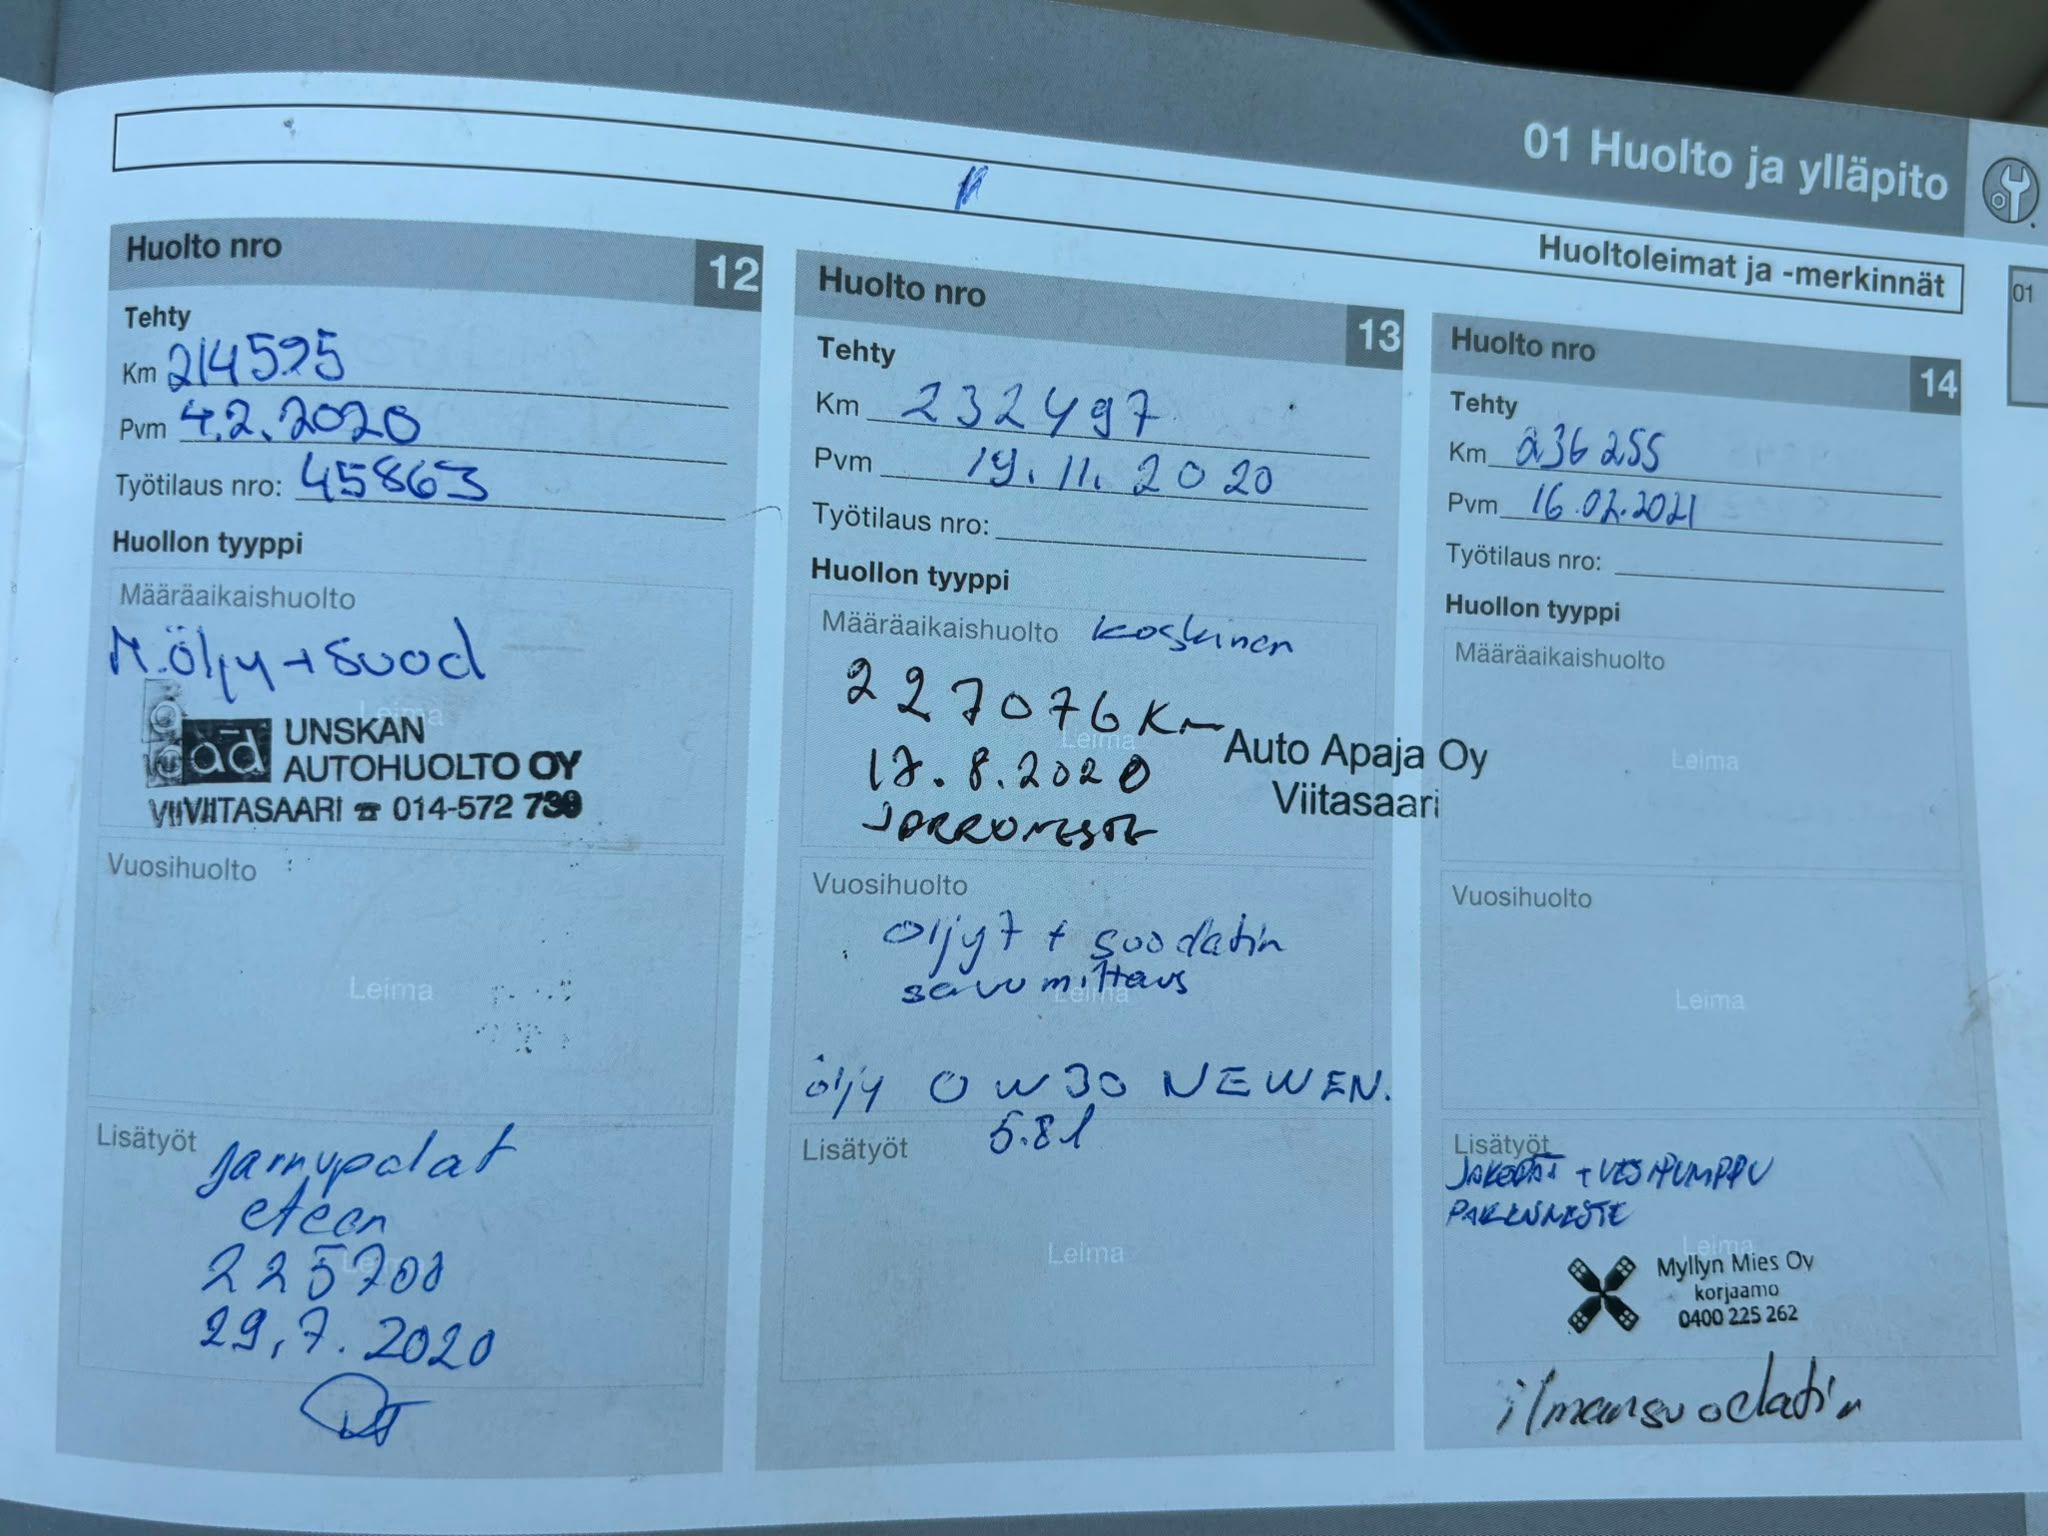 01 Huolto ja ylläpito
Huoltoleimat ja -merkinnät
01
Huolto nro 12
Tehty
Km 214595
Pvm 4.2.2020
Työtilaus nro: 45863
Huollon tyyppi
Määräaikaishuolto
M.öljy + suod
Leima
ad UNSKAN
AUTOHUOLTO OY
VIITASAARI ☎ 014-572 739
Vuosihuolto
Leima
Lisätyöt
jarrupalat
eteen
Leima
225700
29.7.2020
Huolto nro 13
Tehty
Km 232497
Pvm 19.11.2020
Työtilaus nro:
Huollon tyyppi
Määräaikaishuolto koskinen
227076 Km
Leima
Auto Apaja Oy
Viitasaari
17.8.2020
JARRUNESTE
Vuosihuolto
öljyt + suodatin
savumittaus
Leima
öljy 0W30 NEWEN.
5.8l
Lisätyöt
Leima
Huolto nro 14
Tehty
Km 236 255
Pvm 16.02.2021
Työtilaus nro:
Huollon tyyppi
Määräaikaishuolto
Leima
Vuosihuolto
Leima
Lisätyöt
+ VESIPUMPPU
Leima
Myllyn Mies Oy
korjaamo
0400 225 262
ilmansuodatin